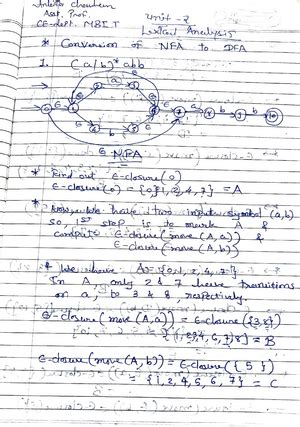 Asst. Prof.
CE-dept. MBIT
Unit - 2
Lexical Analysis
* Conversion of NFA to DFA
1. (a/b)* abb
NFA
* Find out ε-closure(0)
ε-closure(0) = {0,1,2,4,7} = A
* Now, we have two input symbol (a,b)
so, 1st step is to mark A &
compute ε-closure(move(A,a)) &
ε-closure(move(A,b))
* We have A = {0,1,2,4,7}
In A, only 2 & 7 have transitions
on a, to 3 & 8, respectively.
ε-closure(move(A,a)) = ε-closure({3,8})
= {1,2,3,4,6,7,8} = B
ε-closure(move(A,b)) = ε-closure({5})
= {1,2,4,5,6,7} = C